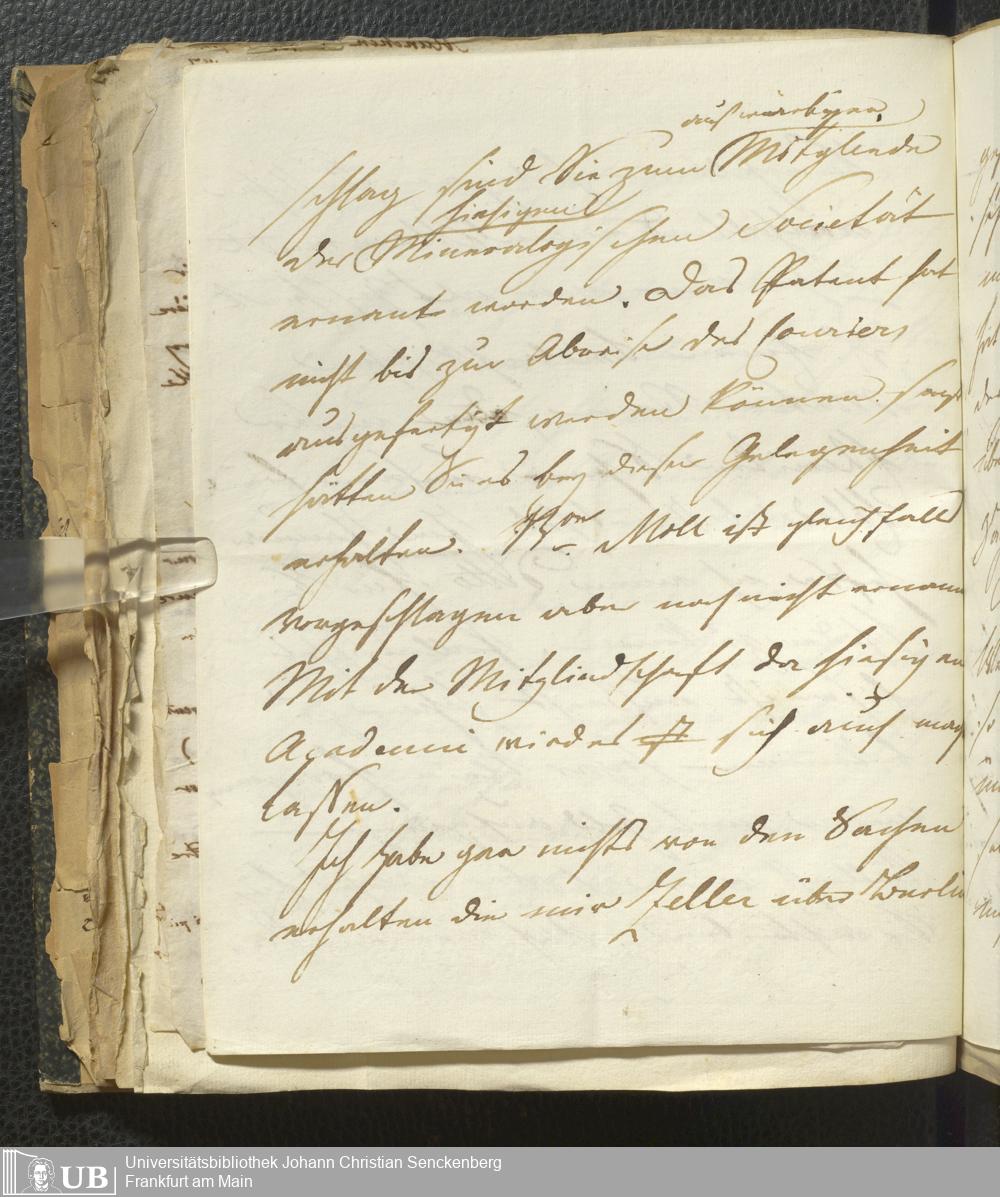 auswärtigen
schlag sind Sie zum Mitgliede
hiesigen
der Mineralogischen Societät
ernant worden. Das Patent hat
nicht bis zur Abreise des Couriers
ausgefertigt werden können sonst
hätten Sie es bey dieser Gelegenheit
erhalten. Moll ist gleichfalls
vorgeschlagen aber noch nicht ernannt
Mit der Mitgliedschaft der hiesigen
Academie wird es sich auch mach
lassen.
Ich habe gar nichts von den Sachen
erhalten die mir Zeller über Berlin
Universitätsbibliothek Johann Christian Senckenberg
Frankfurt am Main
UB